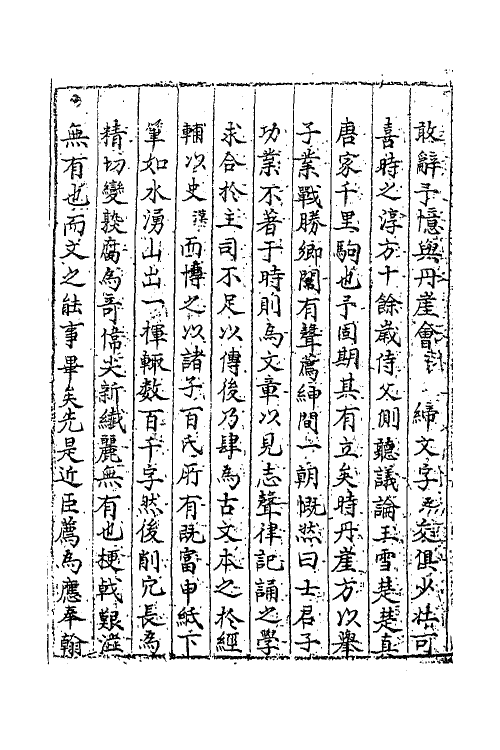 敢辭予憶與丹崖會 締文字 交俱少壯可
喜時之淳方十餘歲侍父側聽議論玉雪楚楚真
唐家千里駒也予固期其有立矣時丹崖方以舉
子業戰勝鄉闈有聲薦紳間一朝慨然曰士君子
功業不著于時則為文章以見志聲律記誦之學
求合於主司不足以傳後乃肆為古文本之於經
輔以史漢而博之以諸子百氏所有既富申紙下
筆如水湧山出一揮輒数百千字然後削冗長為
精切變熟腐為奇偉尖新纖麗無有也梗戟艱澁
無有也而文之能事畢矣先是近臣薦為應奉翰